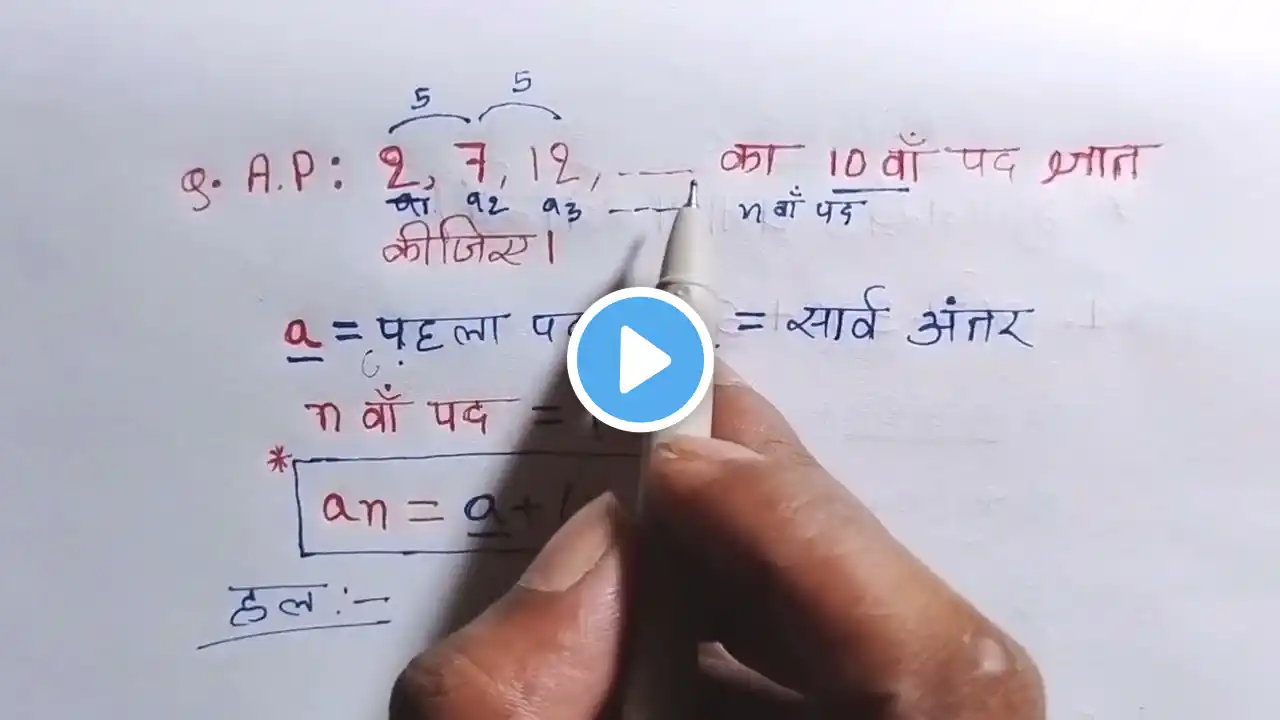 5 5
Q. A.P: 2, 7, 12, ---- का 10 वाँ पद ज्ञात
a2 a3 ---- n वाँ पद
कीजिए।
a = पहला = सार्व अंतर
n वाँ पद =
* an = a + (
हल :-